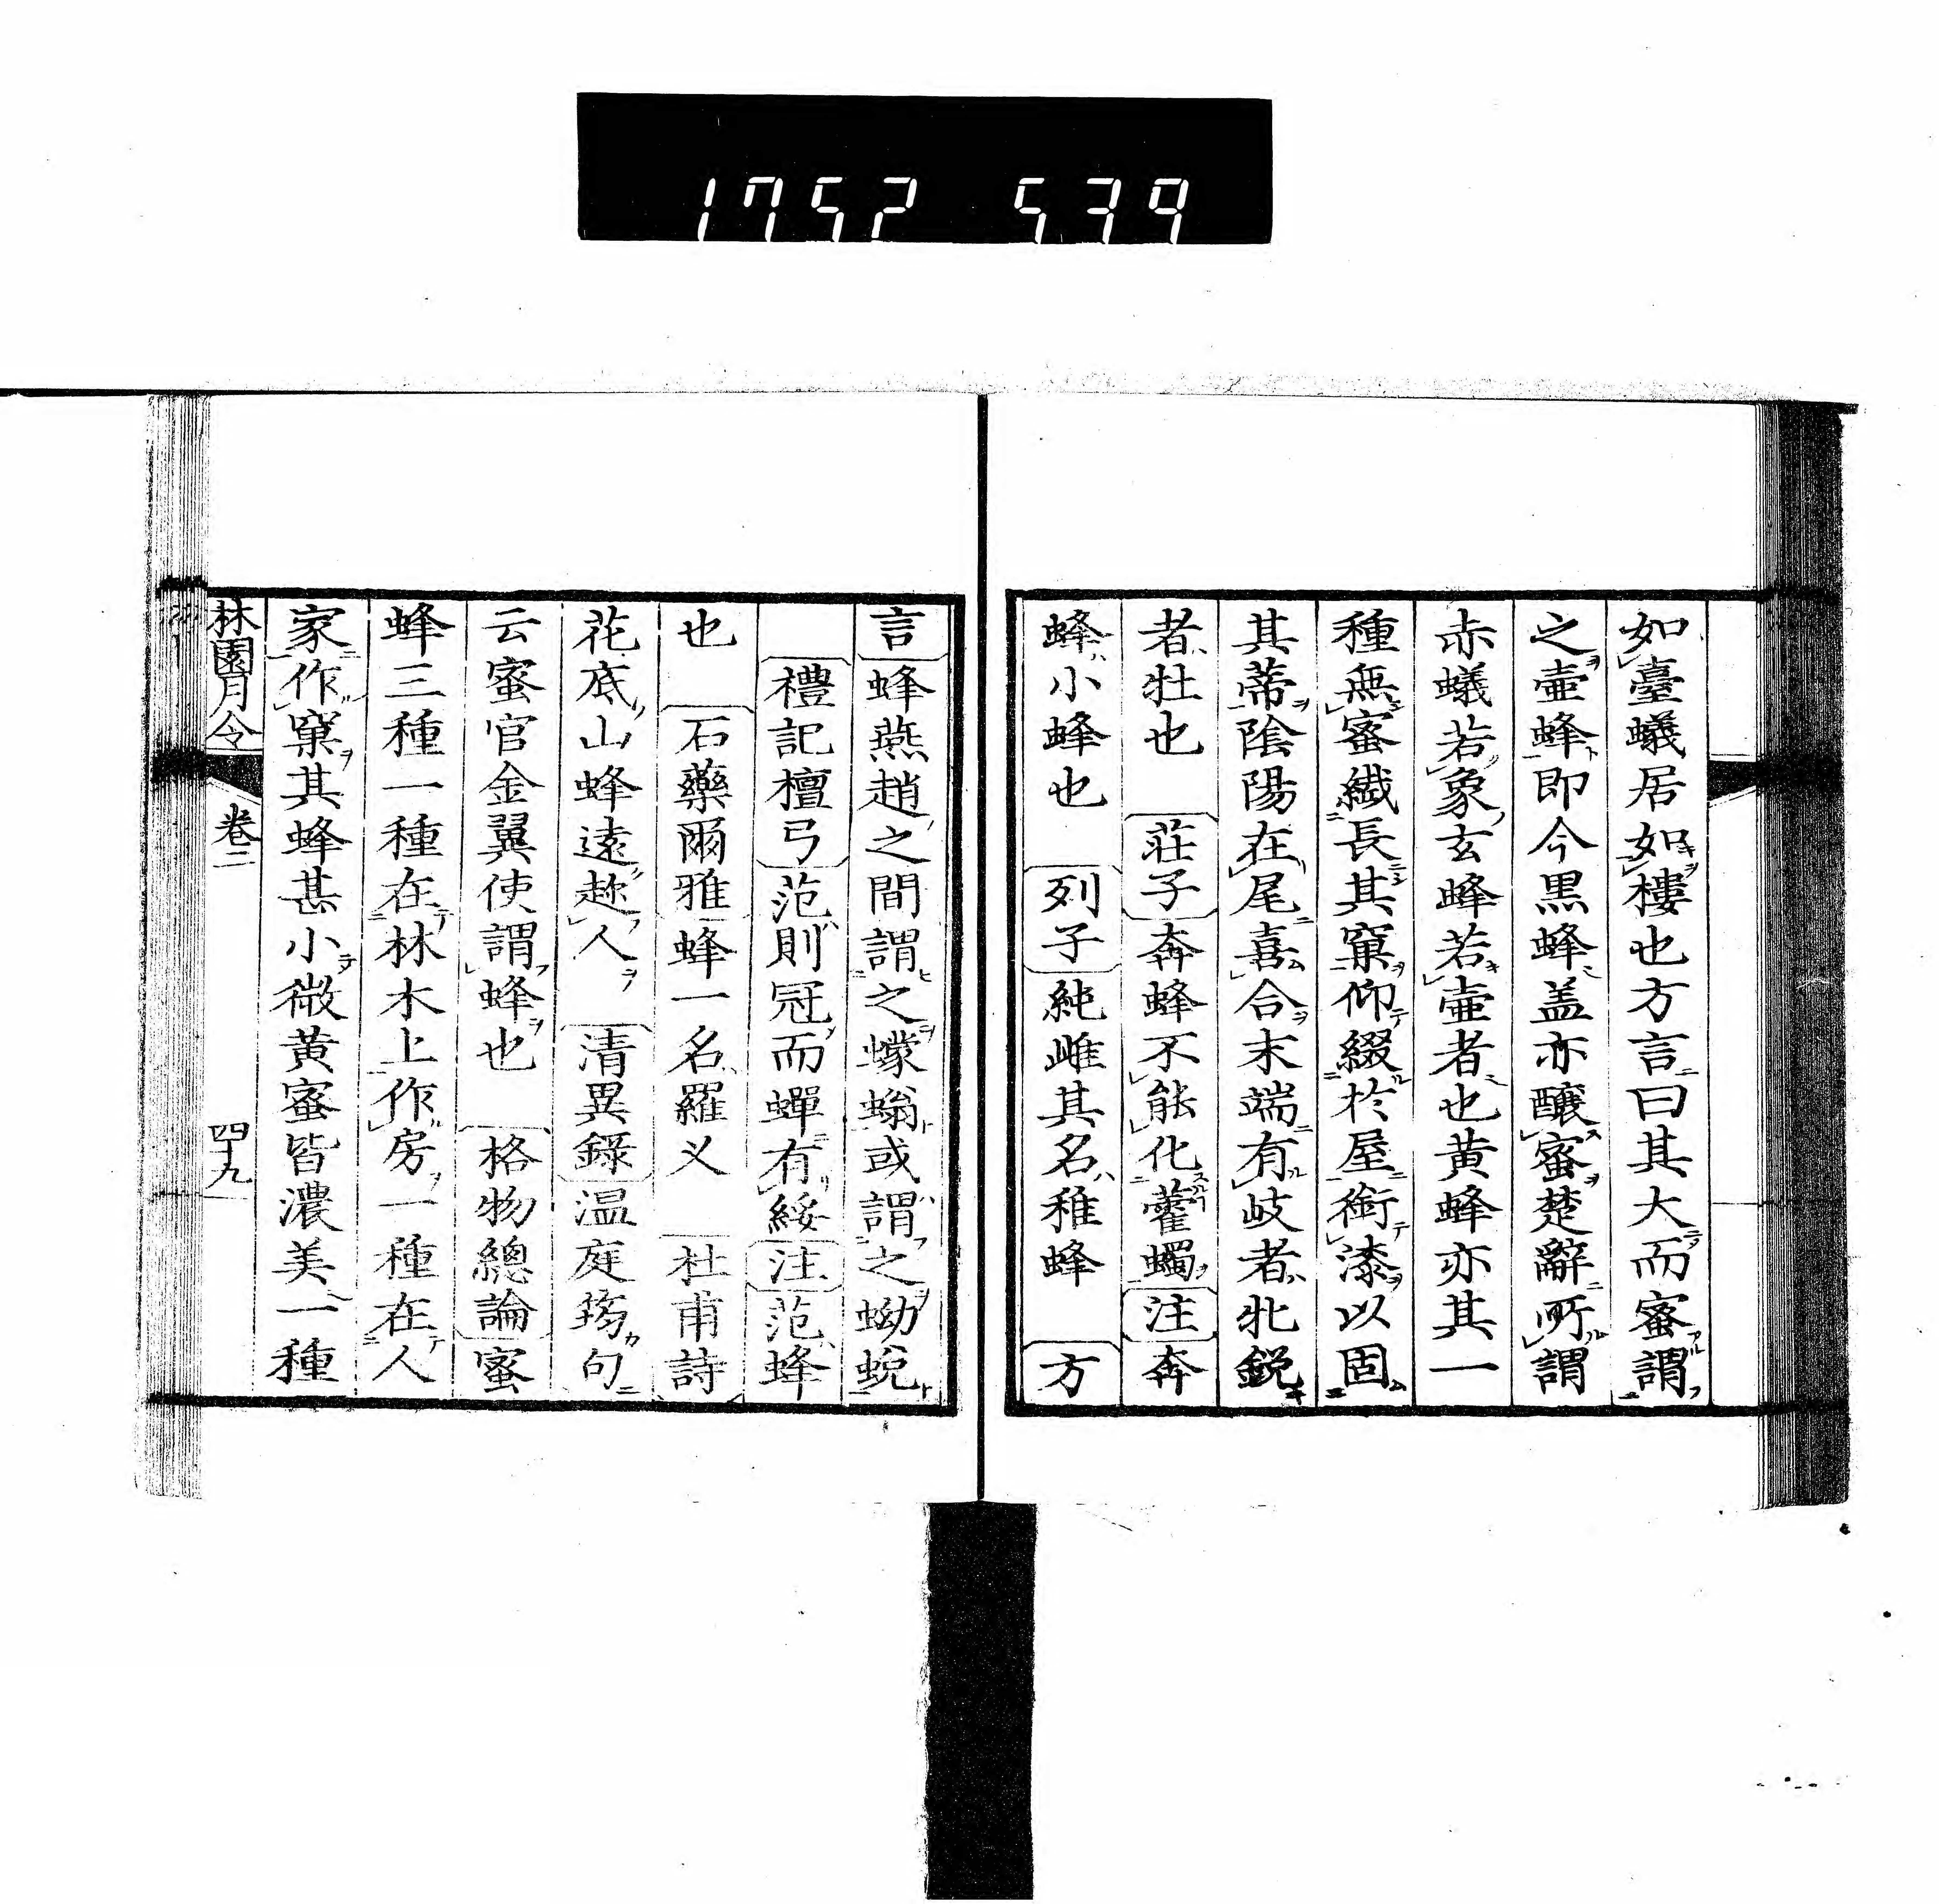 1752 539
如臺蟻居如樓也方言曰其大而蜜謂
之壷蜂即今黒蜂盖亦釀蜜楚辭所謂
赤蟻若象玄蜂若壷者也黄蜂亦其一
種無蜜纎長其窠仰綴於屋銜漆以固
其蔕陰陽在尾喜合末端有岐者牝鋭
者牡也 荘子奔蜂不能化藿蠋注奔
蜂小蜂也 列子純雌其名稚蜂 方
言蜂燕趙之間謂之蠓螉或謂之蚴蛻
禮記檀弓范則冠而蟬有緌注范蜂
也 石藥爾雅蜂一名羅义 杜甫詩
花底山蜂遠趂人 清異錄温庭筠句
云蜜官金翼使謂蜂也 格物總論蜜
蜂三種一種在林木上作房一種在人
家作窠其蜂甚小微黄蜜皆濃美一種
林園月令 卷二 四十九